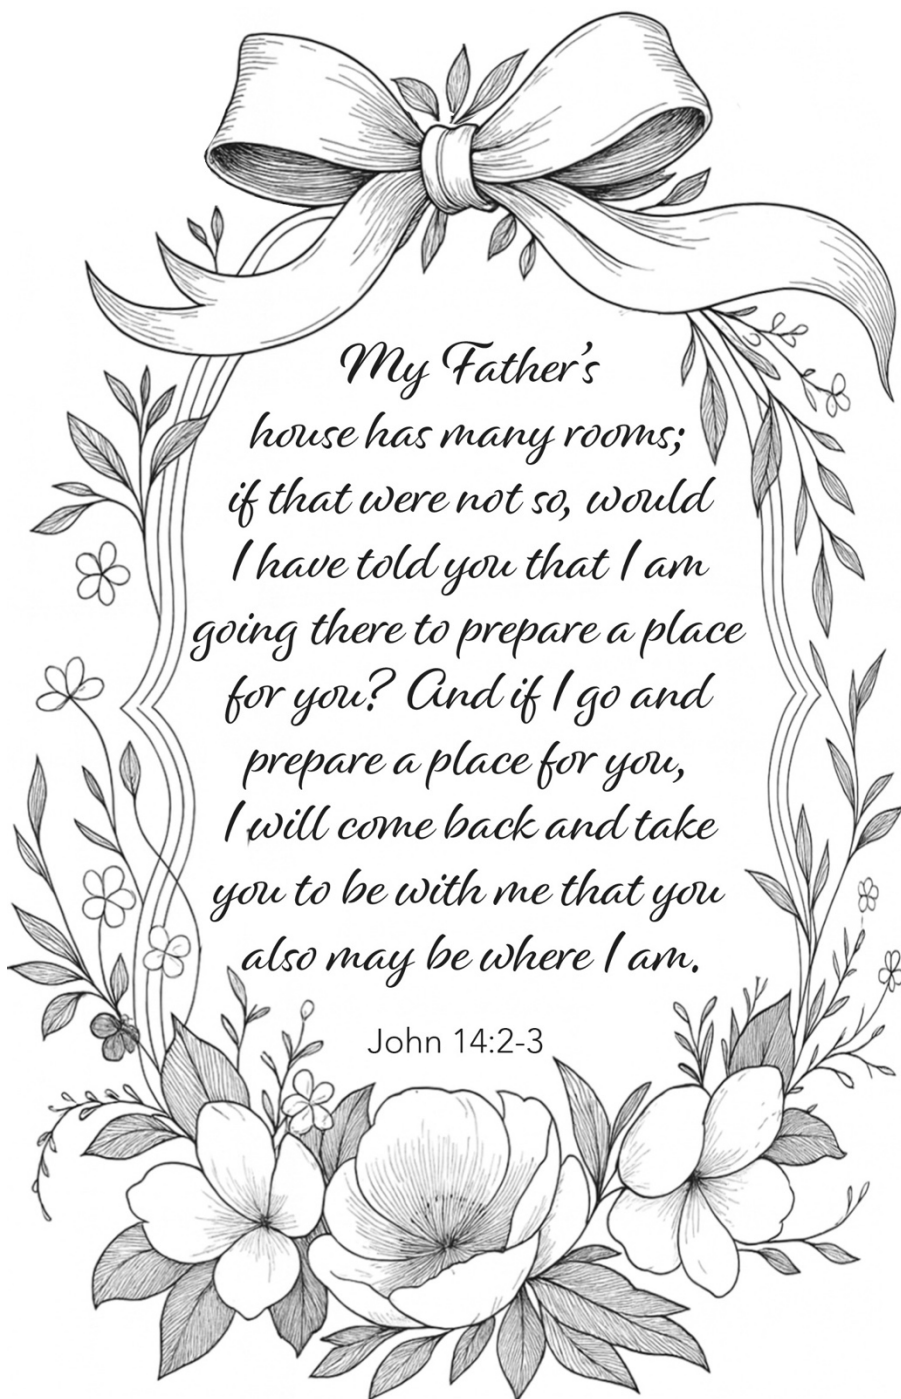 My Father's
house has many rooms;
if that were not so, would
I have told you that I am
going there to prepare a place
for you? And if I go and
prepare a place for you,
I will come back and take
you to be with me that you
also may be where I am.
John 14:2-3